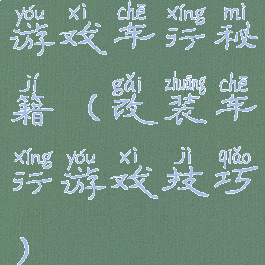 yóu xì chē xíng mì
游戏车行秘
jí gǎi zhuāng chē
籍（改装车
xíng yóu xì jì qiǎo
行游戏技巧
）